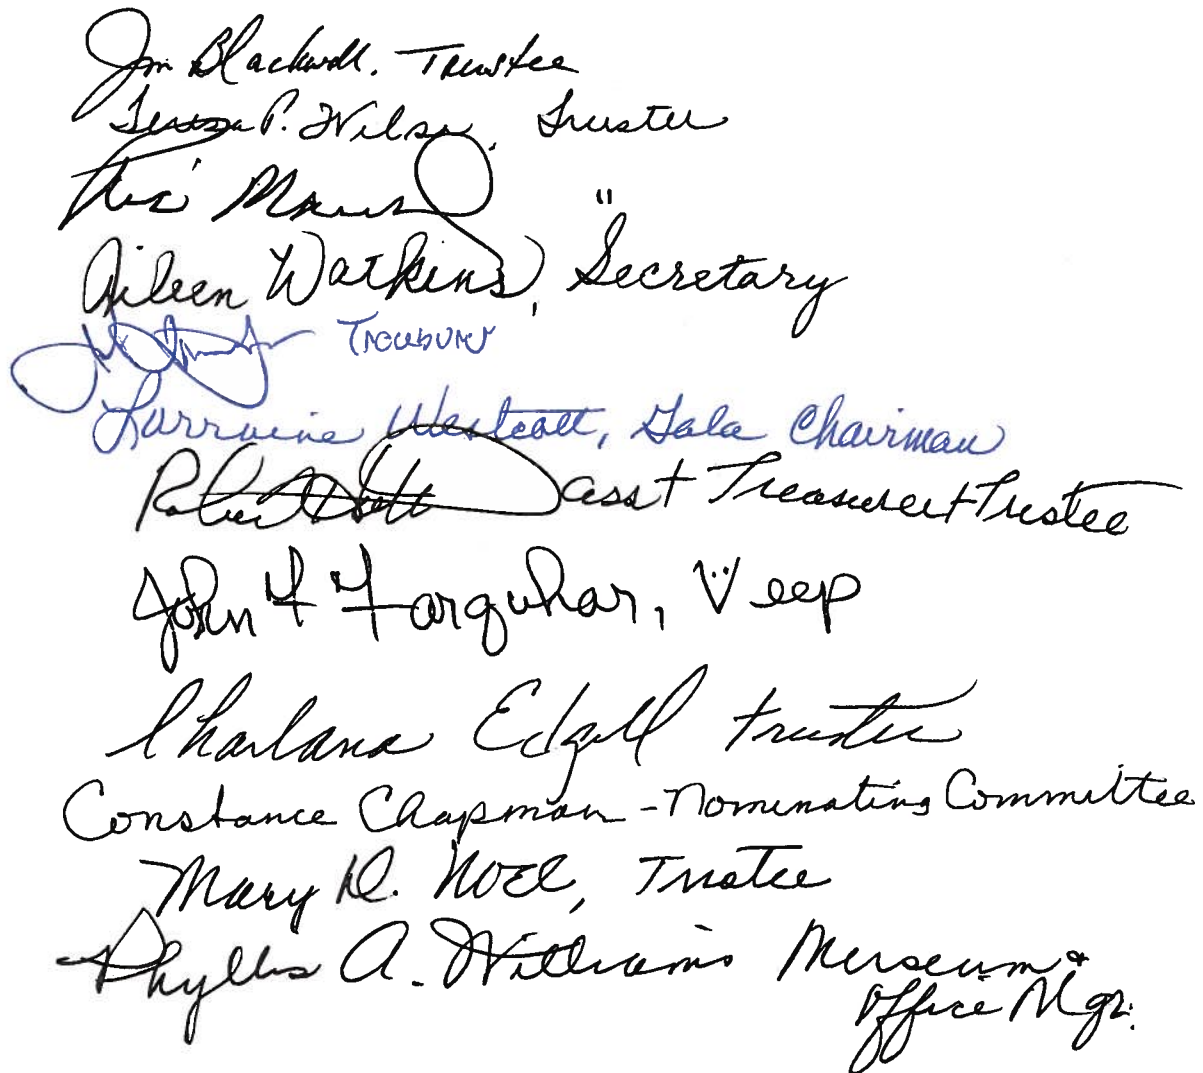 Jim Blackwell. Trustee
Teresa P. Wilson, Trustee
"
Aileen Watkins, Secretary
Treasurer
Lorraine Westcott, Gala Chairman
Robert Scott asst Treasurer + Trustee
John F Farquhar, Veep
Charlana Edgell trustee
Constance Chapman - Nominating Committee
Mary D. Noel, Trustee
Phyllis A. Williams Museum &
Office Mgr.